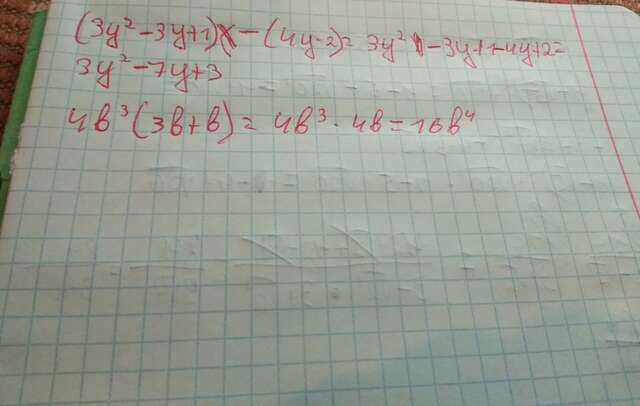 (3y²-3y+1) - (4y-2) = 3y² -3y+1-4y+2=
3y²-7y+3
4b³(3b+b) = 4b³ · 4b = 16b⁴